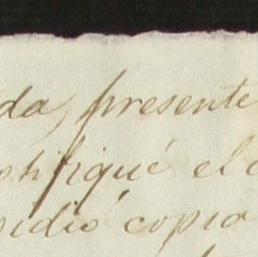 da, presente
notifiqué el
pidió copia